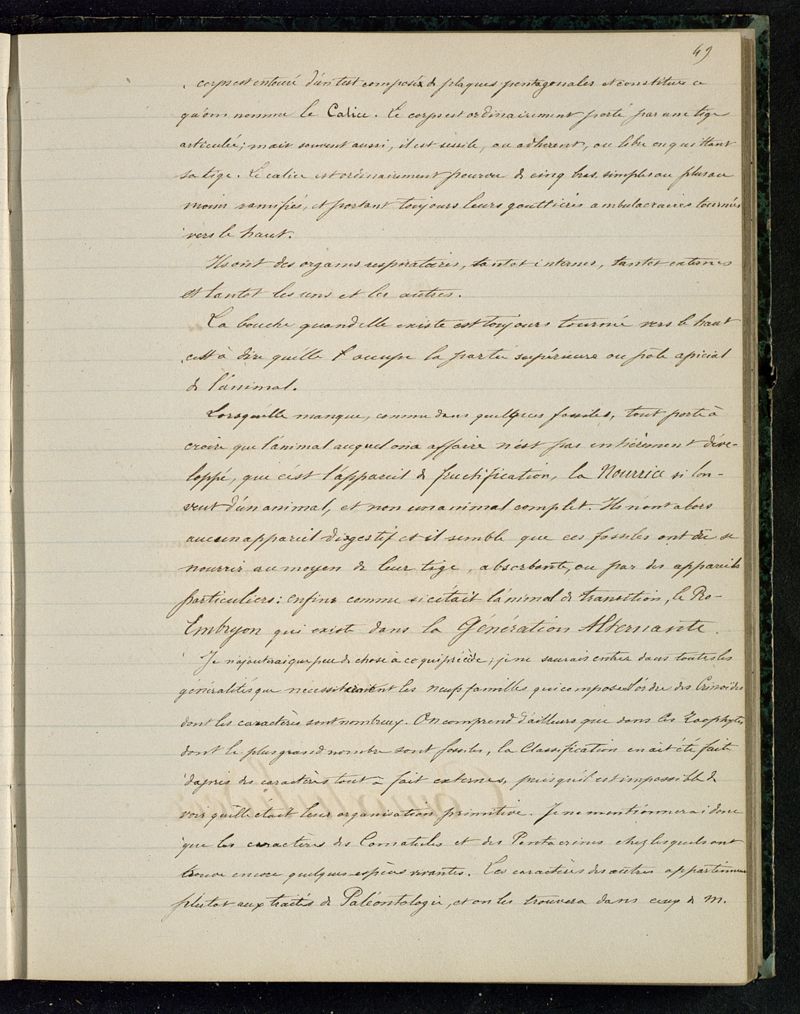 49
corps est entouré d'un test composé de plaques pentagonales et constitue ce
qu'on nomme le Calice. Ce corps est ordinairement porté par une tige
articulée; mais souvent aussi, il est sessile, ou adhérent, ou libre en quittant
sa tige. Le calice est ordinairement pourvu de cinq bras, simples ou plus ou
moins ramifiés, et portant toujours leurs gouttières ambulacraires tournées
vers le haut.
Ils ont des organes respiratoires, tantot internes, tantot externes
et tantot les uns et les autres.
La bouche quand elle existe est toujours tournée vers le haut
c'est à dire qu'elle occupe la partie supérieure ou pôle apicial
de l'animal.
Lorsqu'elle manque, comme dans quelques fossiles, tout porte à
croire que l'animal auquel on a affaire n'est pas entièrement déve-
loppé, que c'est l'appareil de fructification, la Nourrice si l'on
veut d'un animal, et non un animal complet. Ils n'ont alors
aucun appareil digestif et il semble que ces fossiles ont dû se
nourrir au moyen de leur tige, absorbante, ou par des appareils
particuliers: enfin comme si c'était l'animal de transition, le Pro-
Embryon qui existe dans la Génération Alternante.
Je n'ajouterai que peu de chose à ce qui précède; je ne saurais entrer dans toutes les
généralités que nécessiteraient les neuf familles qui compose l'ordre des Crinoïdes
dont les caractères sont nombreux. On comprend d'ailleurs que dans les Zoophytes
dont le plus grand nombre sont fossiles, la Classification en ait été faite
d'après des caractères tout à fait externes, puisqu'il est impossible de
voir qu'elle était leur organisation primitive. Je ne mentionnerai donc
que les caractères des Comatules et des Pentacrines chez lesquels ont
trouve encore quelques espèces vivantes. Les caractères des autres appartiennent
plutot aux traités de Paléontologie, et on les trouvera dans ceux de M.